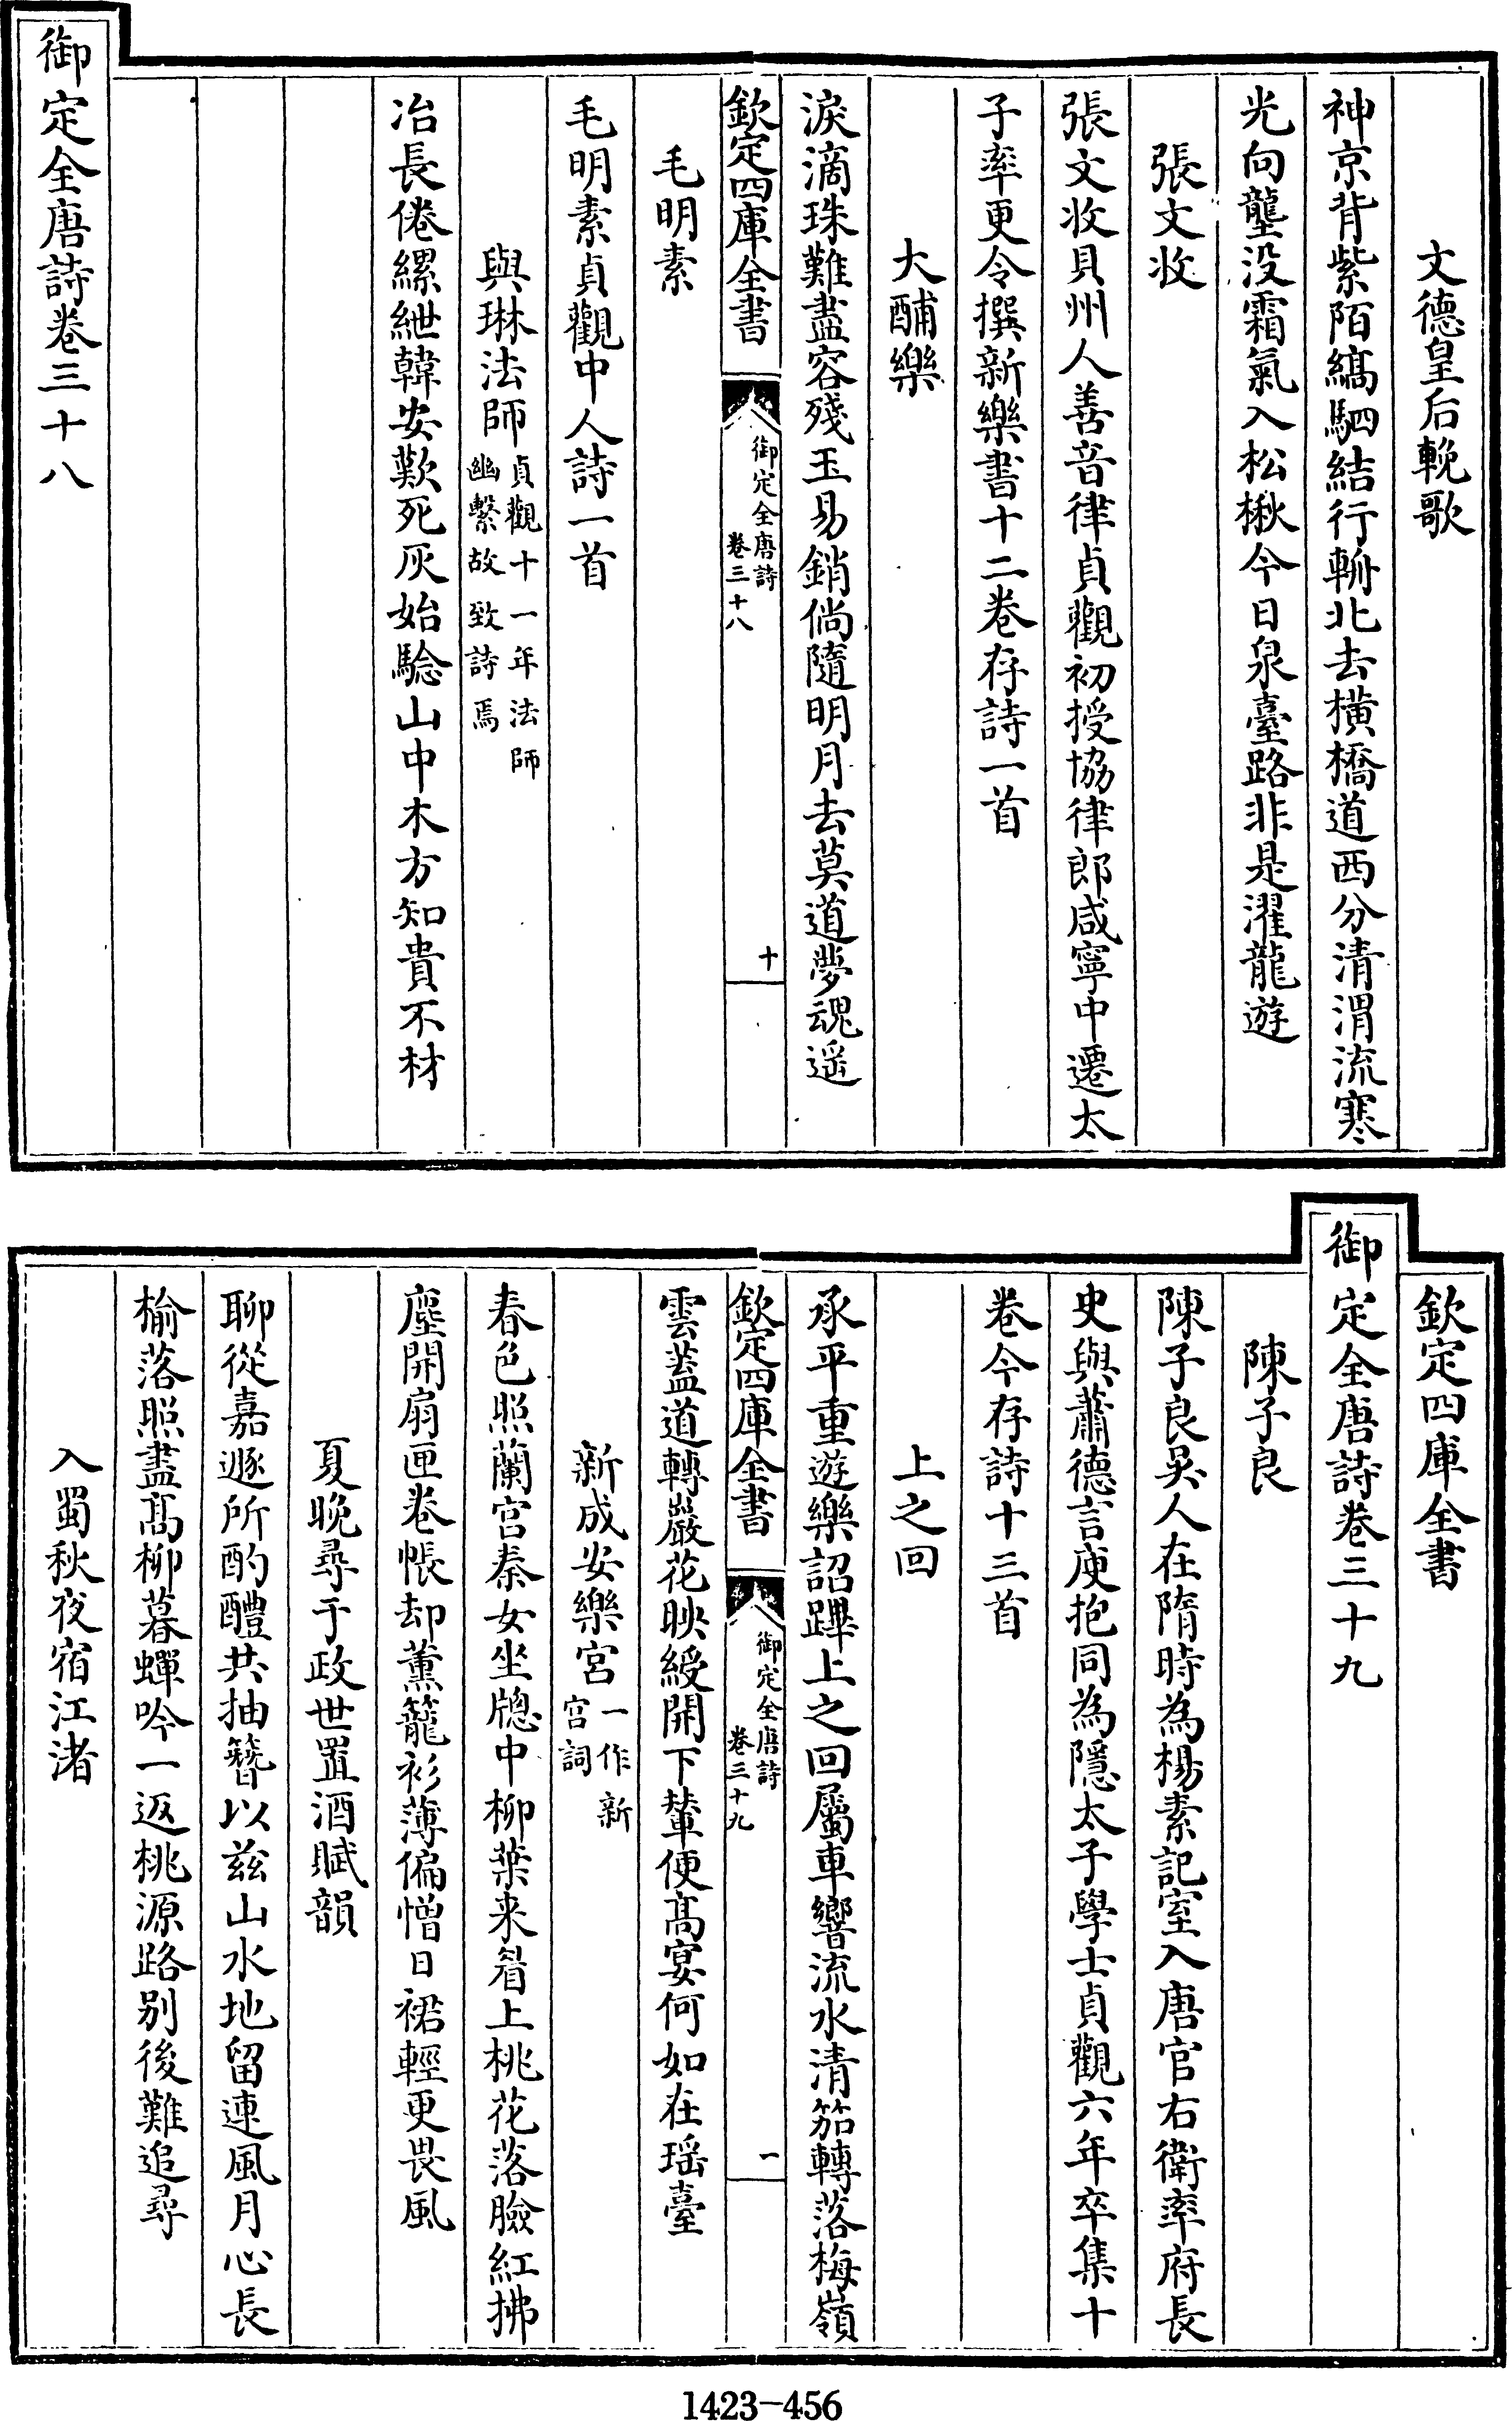 文德皇后輓歌
神京背紫陌縞駟結行輈北去橫橋道西分清渭流寒
光向壟没霜氣入松楸今日泉臺路非是濯龍遊
張文收
張文收貝州人善音律貞觀初授協律郎咸寧中遷太
子率更令撰新樂書十二卷存詩一首
大酺樂
淚滴珠難盡容殘玉易銷倘隨明月去莫道夢魂遥
欽定四庫全書
御定全唐詩
卷三十八
十
毛明素
毛明素貞觀中人詩一首
與琳法師
貞觀十一年法師
幽繫故致詩焉
冶長倦縲紲韓安歎死灰始驗山中木方知貴不材
御定全唐詩卷三十八
欽定四庫全書
御定全唐詩卷三十九
陳子良
陳子良吳人在隋時為楊素記室入唐官右衛率府長
史與蕭德言庾抱同為隱太子學士貞觀六年卒集十
卷今存詩十三首
上之回
承平重遊樂詔蹕上之回屬車響流水清笳轉落梅嶺
欽定四庫全書
御定全唐詩
卷三十九
一
雲蓋道轉巖花映綬開下輦便高宴何如在瑶臺
新成安樂宮
一作新
宫詞
春色照蘭宫秦女坐牕中柳葉来眉上桃花落臉紅拂
塵開扇匣卷帳却薰籠衫薄偏憎日裙輕更畏風
夏晚尋于政世置酒賦韻
聊從嘉遯所酌醴共抽簪以兹山水地留連風月心長
榆落照盡髙柳暮蟬吟一返桃源路别後難追尋
入蜀秋夜宿江渚
1423-456